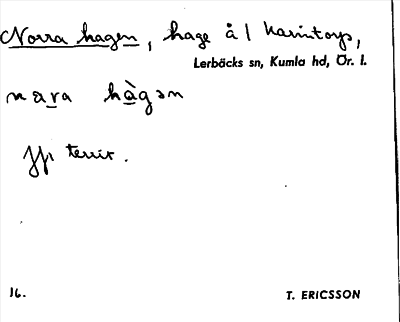 Norra hagen, hage å 1 Karintorp,
Lerbäcks sn, Kumla hd, Ör. l.
nara hàgən
territ.
16.
T. ERICSSON